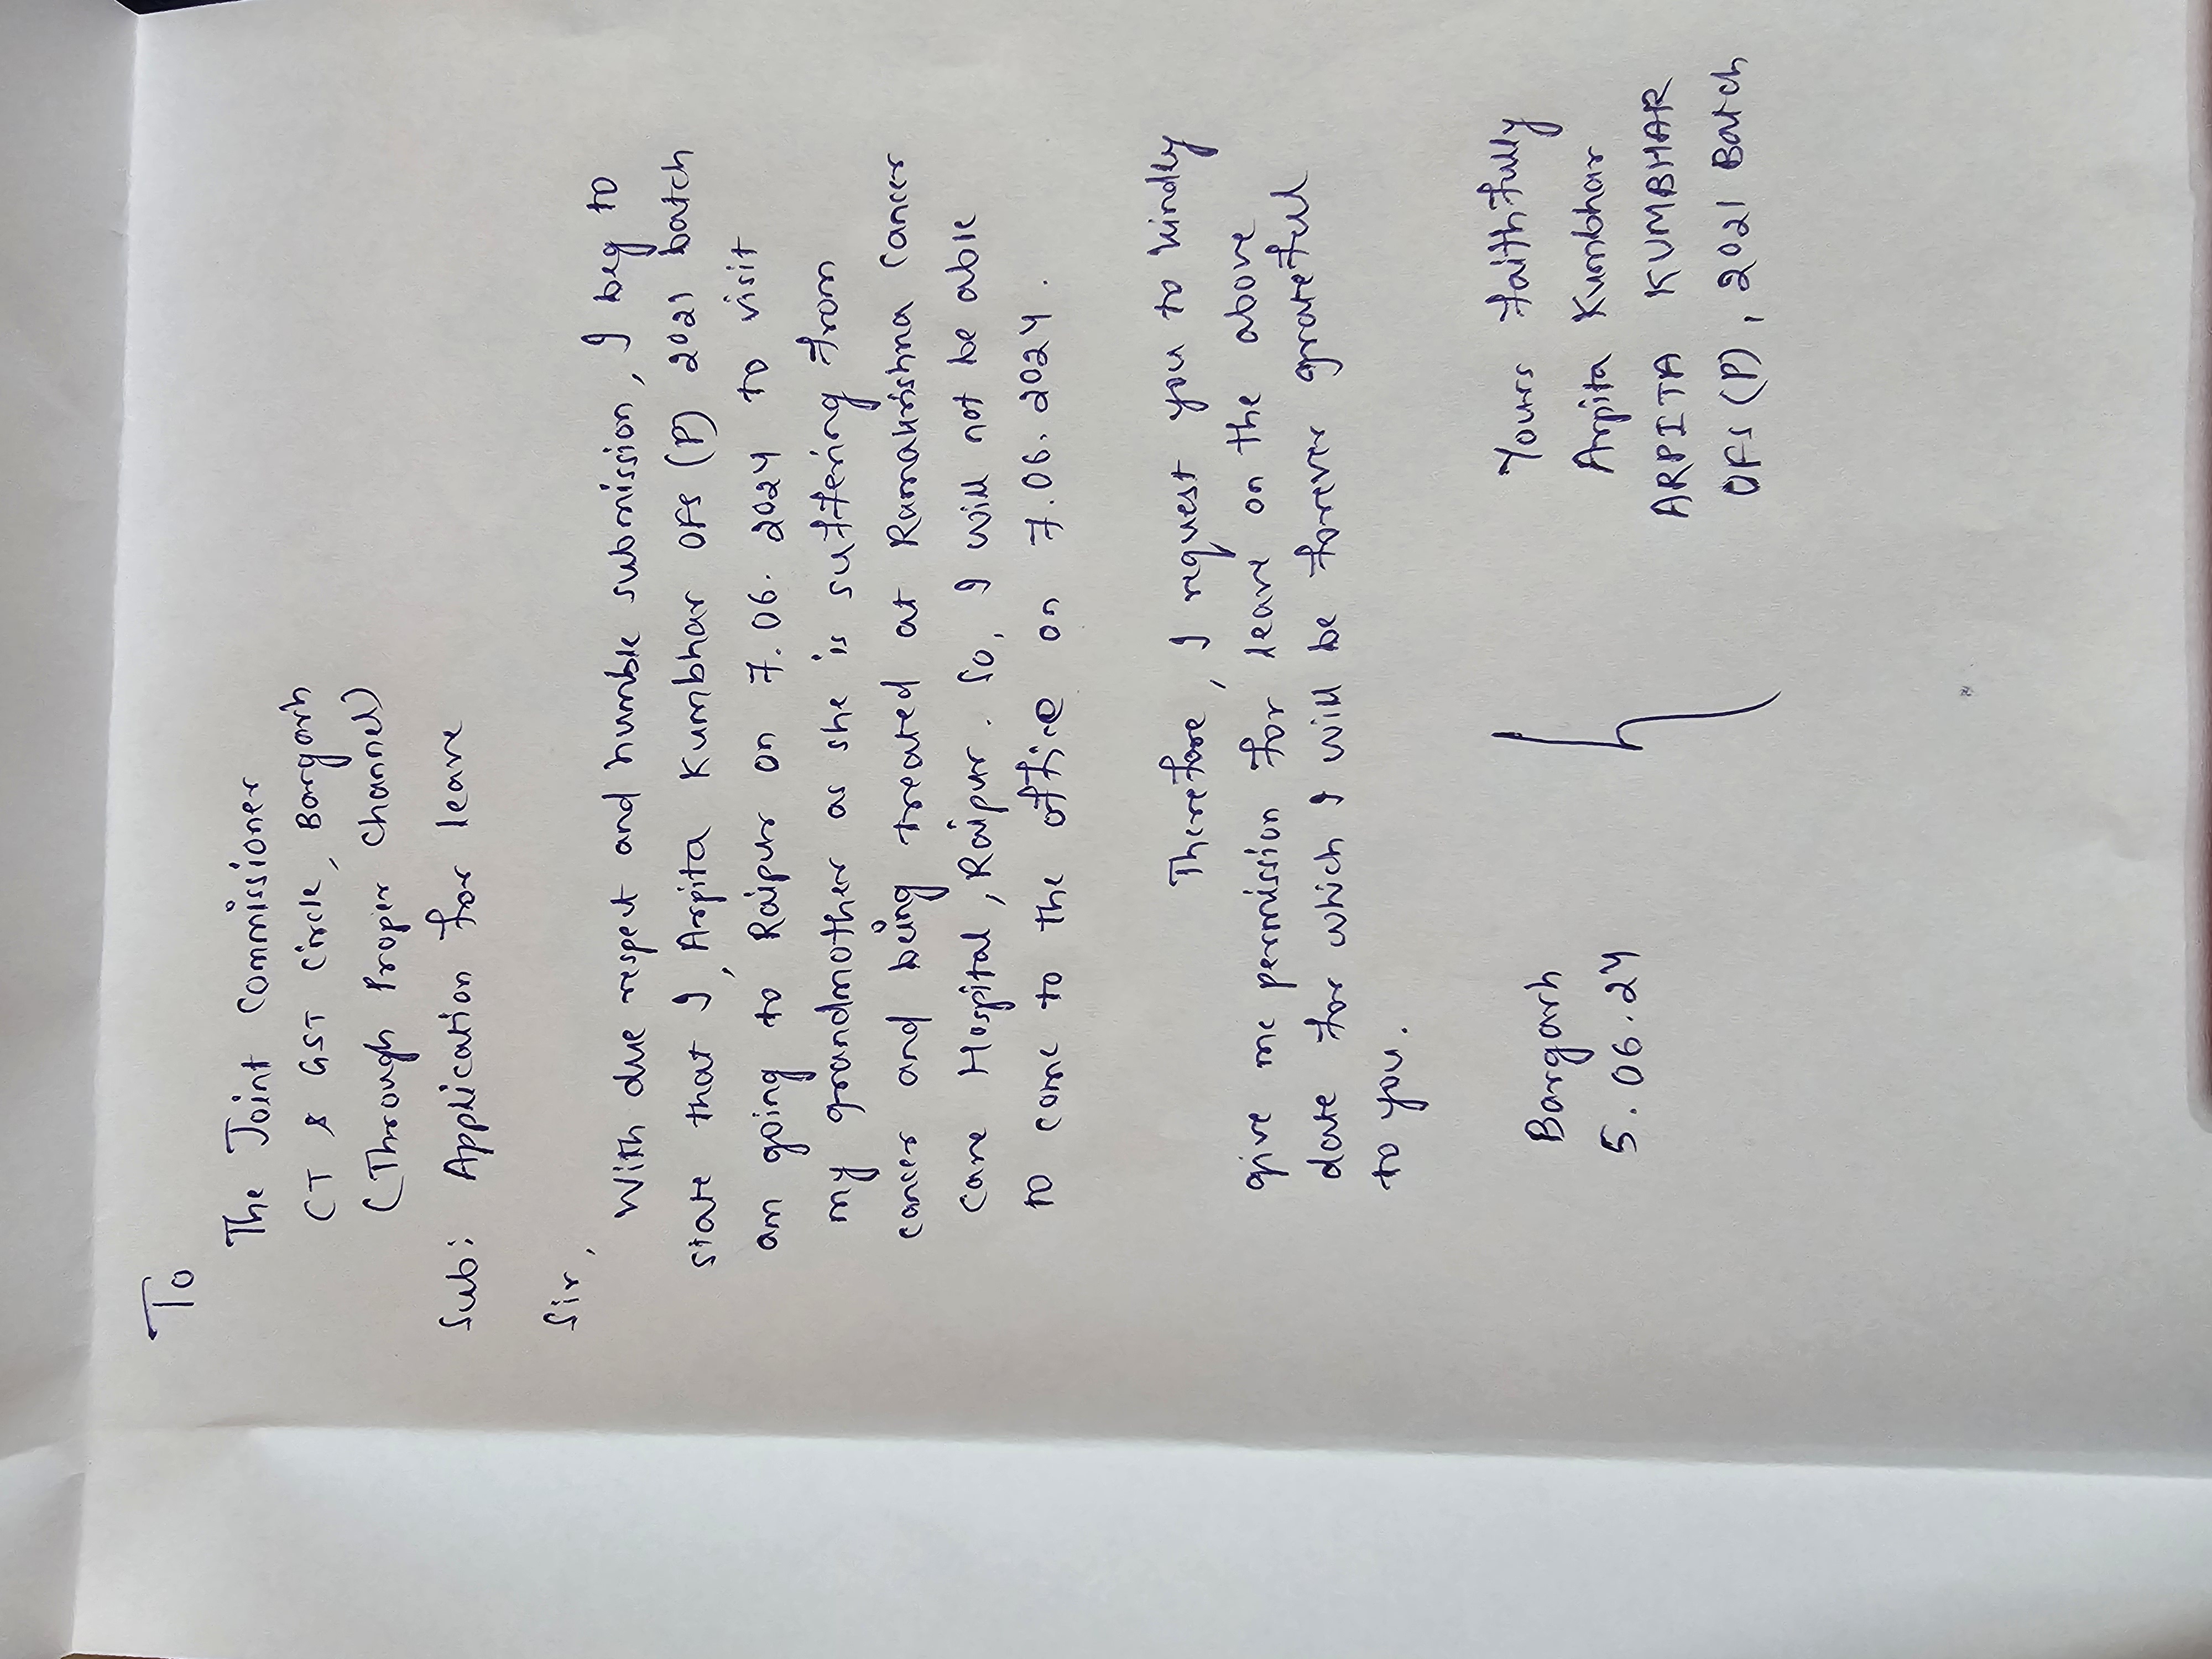 To
The Joint Commissioner
CT & GST Circle, Bargarh
(Through Proper Channel)
Sub: Application for leave
Sir,
With due respect and humble submission, I beg to
state that I, Arpita Kumbhar OFS (P) 2021 batch
am going to Raipur on 7.06.2024 to visit
my grandmother as she is suffering from
cancer and being treated at Ramakrishna Cancer
Care Hospital, Raipur. So, I will not be able
to come to the office on 7.06.2024.
Therefore, I request you to kindly
give me permission for leave on the above
date for which I will be forever grateful
to you.
Yours faithfully
Bargarh
Arpita Kumbhar
5.06.24
ARPITA KUMBHAR
OFS (P), 2021 Batch